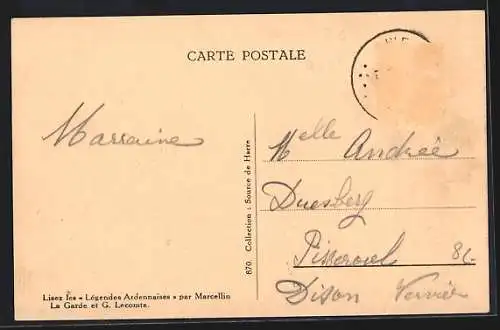 CARTE POSTALE
Marraine
Melle Andrée
Duesberg
Pisseroul 86
Dison Verviers
870. Collection : Source de Harre
Lisez les « Légendes Ardennaises » par Marcellin
La Garde et G. Lecomte.